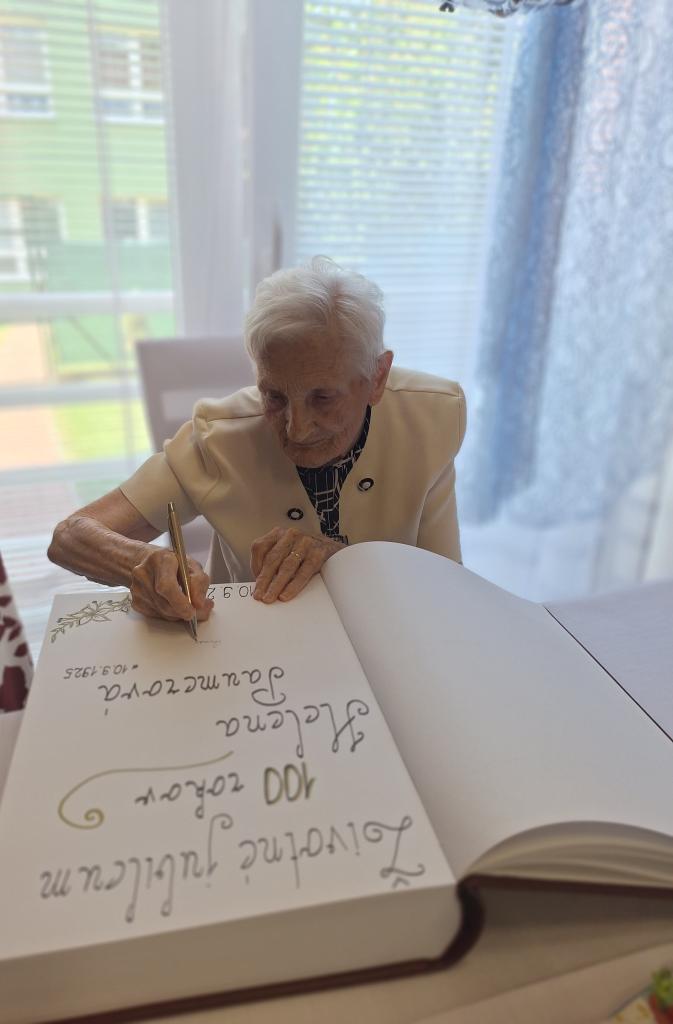 Životné jubileum
100 rokov
Helena
Paumerová
*10.9.1925
10.9.2